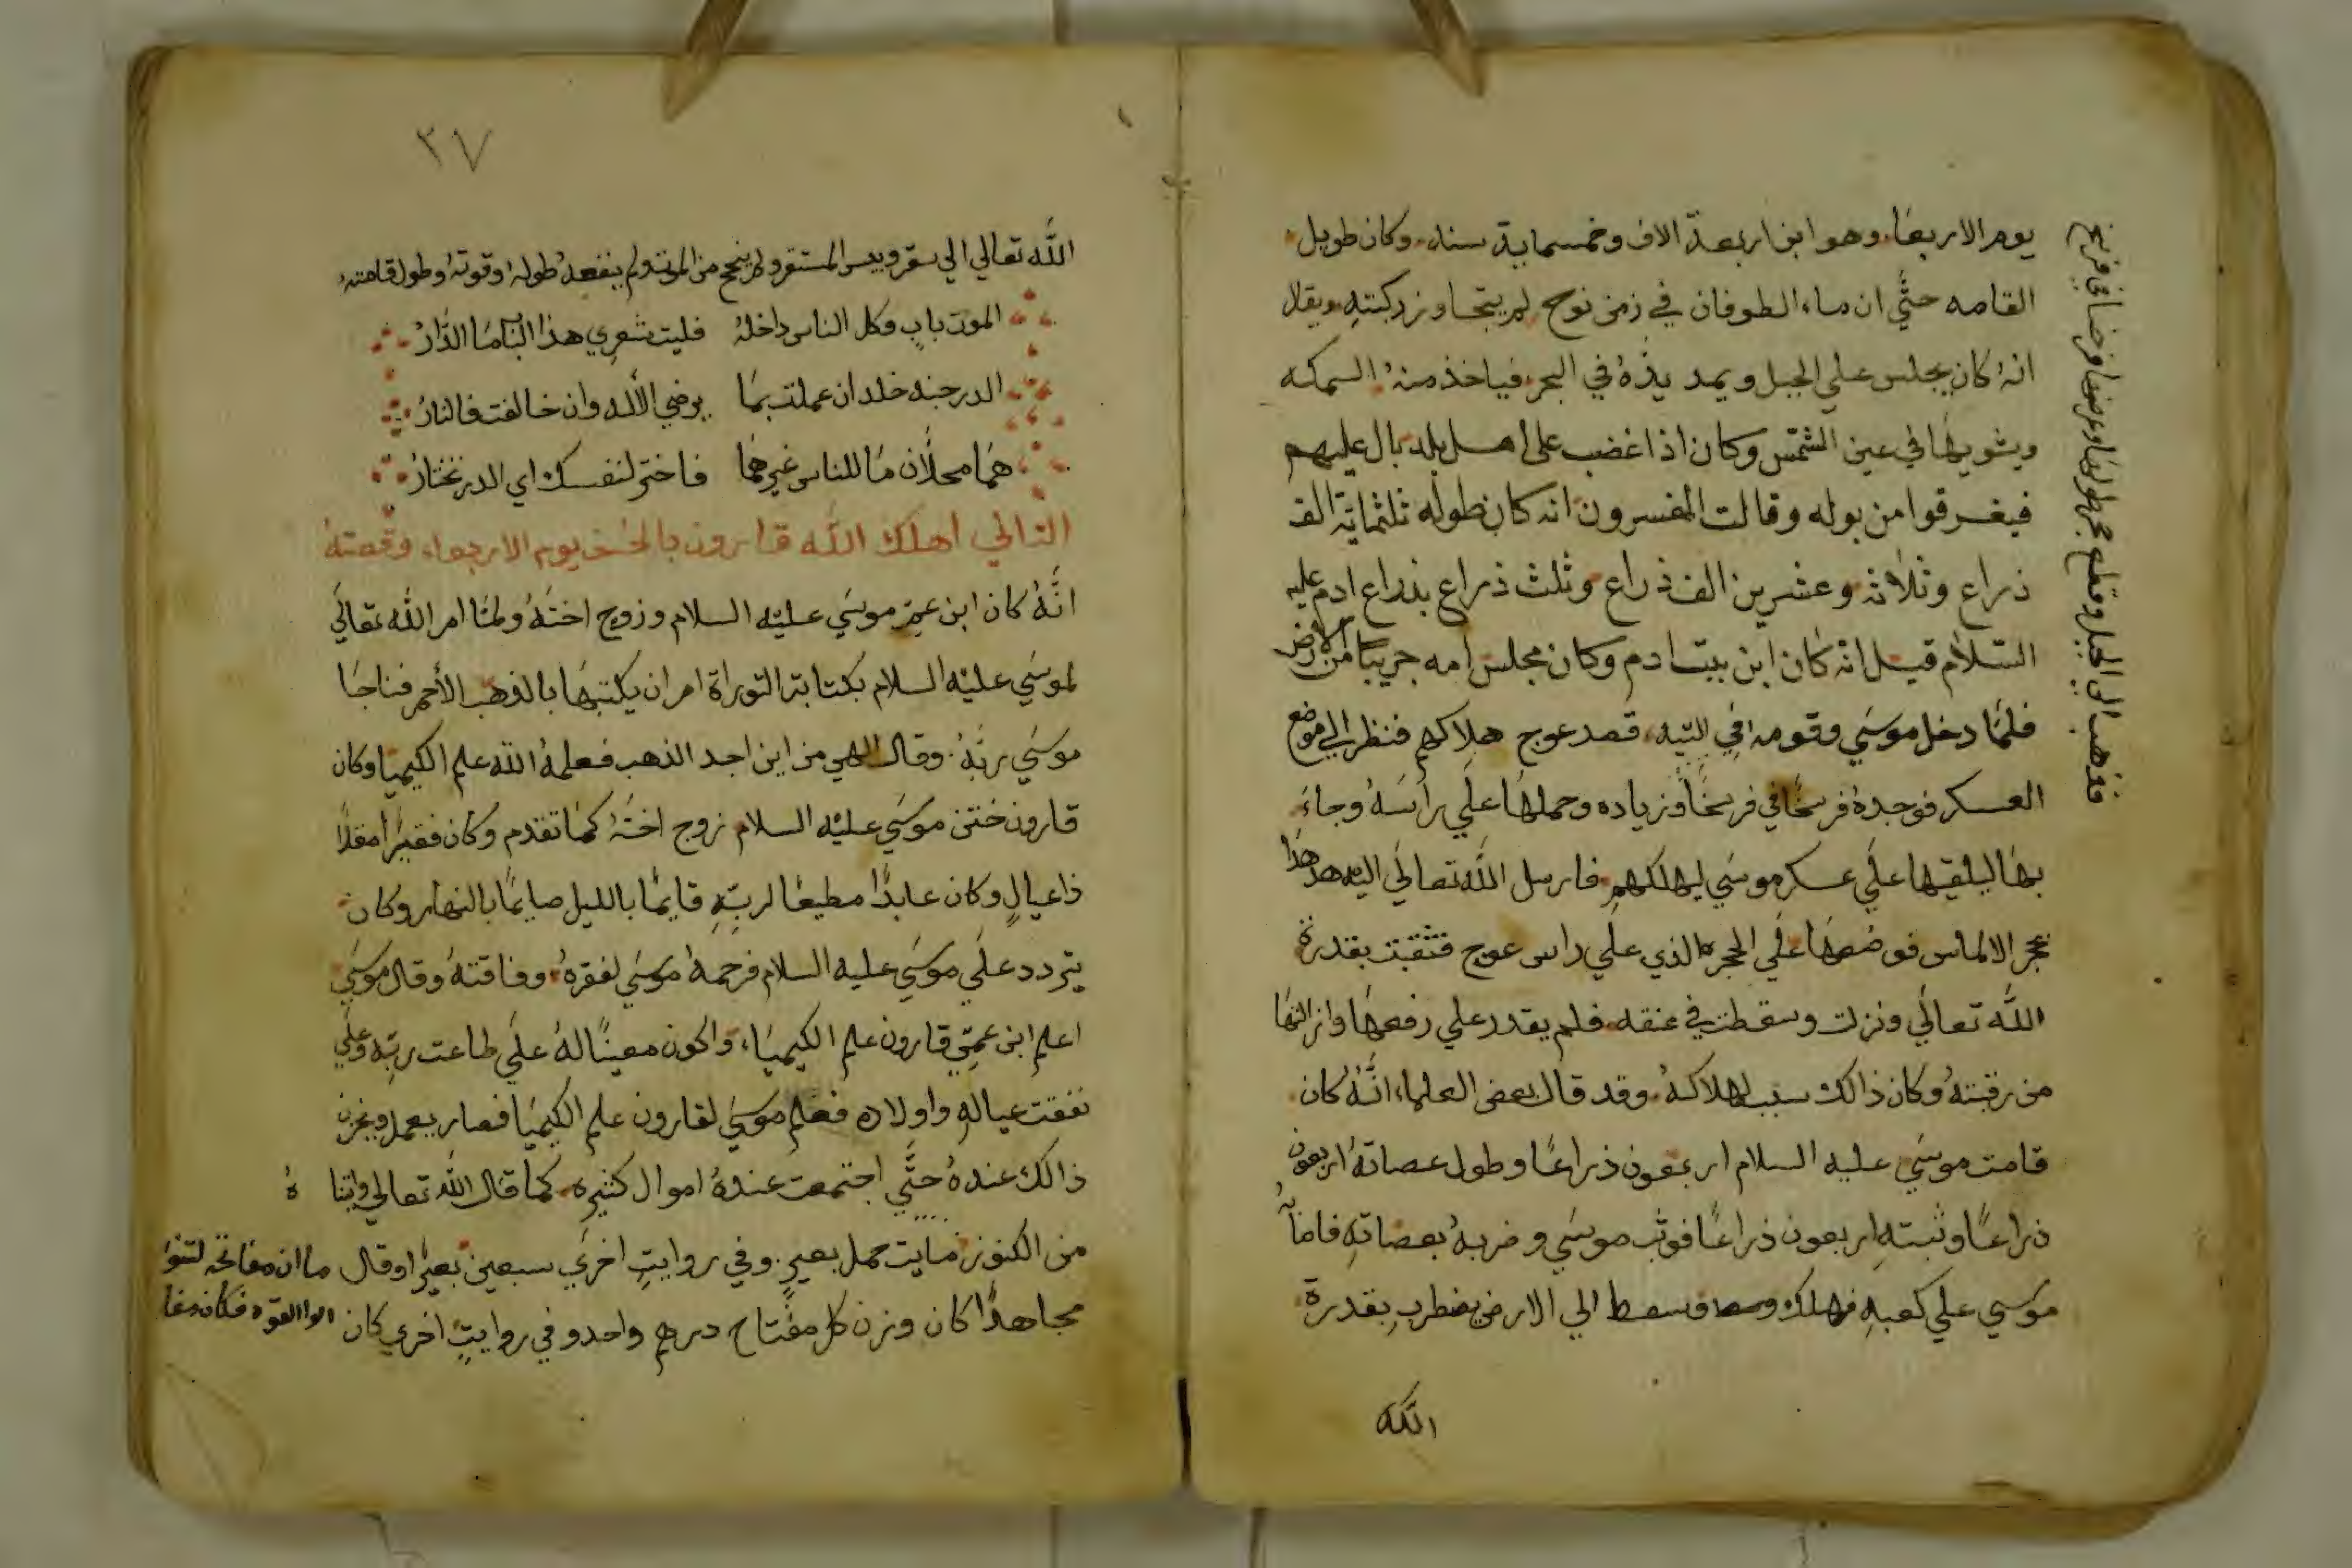 يوم الاربعا وهو ابن اربعة الاف وخمسماية سنه وكان طويل
القامه حتي ان ماء الطوفان في زمن نوح لم يتجاوز ركبته ويقال
انه كان يجلس علي الجبل ويمد يده في البحر فياخذ منه السمكه
ويشويها في عين الشمس وكان اذا غضب علي اهل بلد بال عليهم
فيغرقوا من بوله وقالت المفسرون انه كان طوله ثلثماية الف
ذراع وثلاثه وعشرين الف ذراع وثلث ذراع بذراع ادم عليه
السلام قيل انه كان ابن بيت ادم وكان مجلس امه جريبا من الارض
فلما دخل موسي وقومه في التيه قصد عوج هلاكهم فنظر الي موضع
العسكر فوجده فرسخا في فرسخا وزياده وحملها علي راسه وجاء
بها ليلقيها علي عسكر موسي ليهلكهم فارسل الله تعالي اليه هدهدا
بحجر الالماس فوضعها علي الحجر الذي علي راس عوج فتثقبت بقدرة
الله تعالي ونزلت وسقطت في عنقه فلم يقدر علي رفعها وانزالها
من رقبته وكان ذالك سبب لهلاكه وقد قال بعض العلماء انه كان
قامت موسي عليه السلام اربعون ذراعا وطول عصاته اربعون
ذراعا وثبته اربعون ذراعا فوثب موسي وضربه بعصاته فاصاب
موسي علي كعبه فهلك وسقط الي الارض يضطرب بقدرة
الله
فذهب الي الجبل وقطع حجر طولها وعرضها فرسخا في فرسخ
٣٧
الله تعالي الي سقر وبيس المستقر ولم ينجح من الموت ولم ينفعه طوله وقوته وطول قامته
الموت باب وكل الناس داخله فليت شعري هذا الباب ما الدار
الدر جنه خلد ان عملت بما يرضي الاله وان خالفت فالنار
هما محلان ما للناس غيرهما فاختر لنفسك اي الدر تختار
الثالي اهلك الله قارون بالخسف يوم الاربعاء وقصته
انه كان ابن عم موسي عليه السلام وزوج اخته ولما امر الله تعالي
لموسي عليه السلام بكتابة التوراة امر ان يكتبها بالذهب الأحمر فناجا
موسي ربه وقال الهي من اين اجد الذهب فعلمه الله علم الكيميا وكان
قارون ختن موسي عليه السلام زوج اخته كما تقدم وكان فقيرا مقلا
ذا عيال وكان عابدا مطيعا لربه قايما بالليل صايما بالنهار وكان
يتردد علي موسي عليه السلام فرحمه موسي لفقره وفاقته وقال موسي
اعلم ابن عمتي قارون علم الكيمياء واكون معينا له علي طاعت ربه وعلي
نفقت عياله واولاده فعلم موسي لقارون علم الكيميا فصار يعمل ويخزن
ذالك عنده حتي اجتمعت عنده اموال كثيره كما قال الله تعالي واتينا ه
من الكنوز مايت حمل بعير وفي روايت اخري سبعين بعيرا وقال ما ان مفاتحه لتنوا
مجاهدا كان وزن كل مفتاح درهم واحد وفي روايت اخري كان اولوا القوه فكان مفا